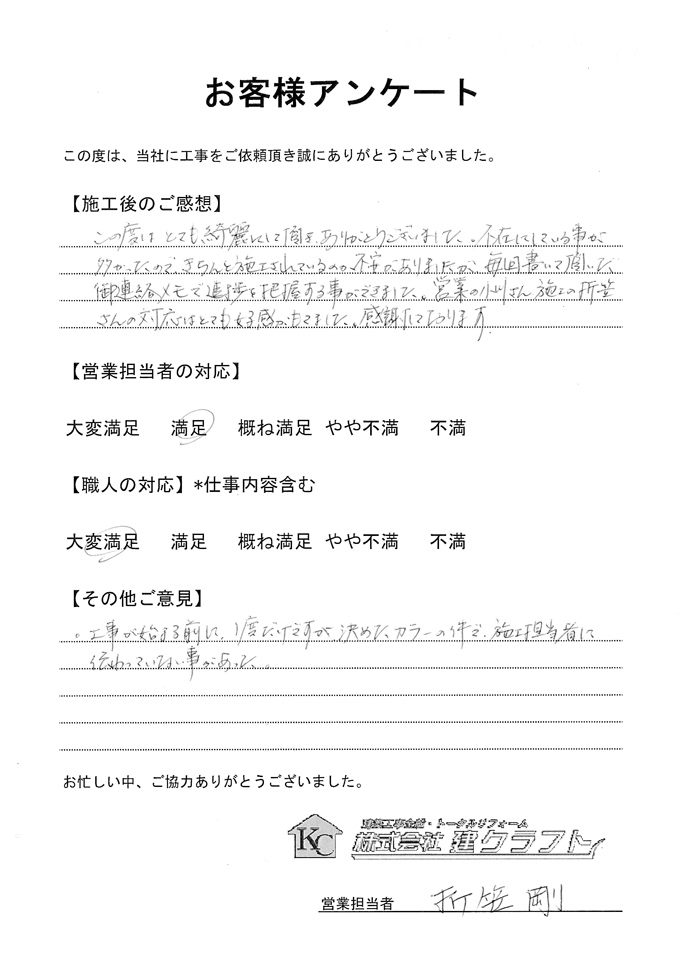 お客様アンケート
この度は、当社に工事をご依頼頂き誠にありがとうございました。
【施工後のご感想】
この度は とても 綺麗にして頂き、ありがとうございました。不在にしている事が
多かったので、きちんと施工されているのか、不安がありましたが、毎回書いて頂いた
御連絡メモで進捗を把握する事ができました。営業の小川さん 施工の折笠
さんの対応はとても好感がもてました。感謝しております
【営業担当者の対応】
大変満足 満足 概ね満足 やや不満 不満
【職人の対応】*仕事内容含む
大変満足 満足 概ね満足 やや不満 不満
【その他ご意見】
。工事が始まる前に、1度だけですが 決めたカラーの件で、施工担当者に
伝わっていない事があった。
お忙しい中、ご協力ありがとうございました。
KC 建築工事全般・トータルリフォーム
株式会社 建クラフト
営業担当者 折笠 剛